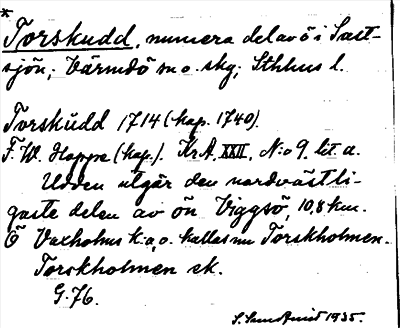 *
Torskudd, numera del av ö i Saxt-
sjön; Värmdö sn o. skg; Sthlms l.
Torskŭdd 1714 (kop. 1740).
F. W. Hoppe (kop.). Kr.A. XXII, N:o 9, lit a.
Udden utgår den nordvästli-
gaste delen av ön Viggsö, 10,8 km.
Ö Vaxholms k:a, o. kallas nu Torskholmen.
Torskholmen ek.
G. 76.
1935.